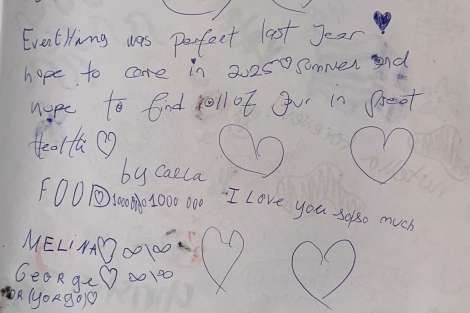 Everthing was perfect last year
hope to come in 2025 sommer and
hope to find roll of your in great
Health ♡
by Carla
FOOD 1000 000 1000 000
I Love you soso much
MELINA ♡ ∞\∞
George ♡ ∞\∞
OR (yorgo) ♡